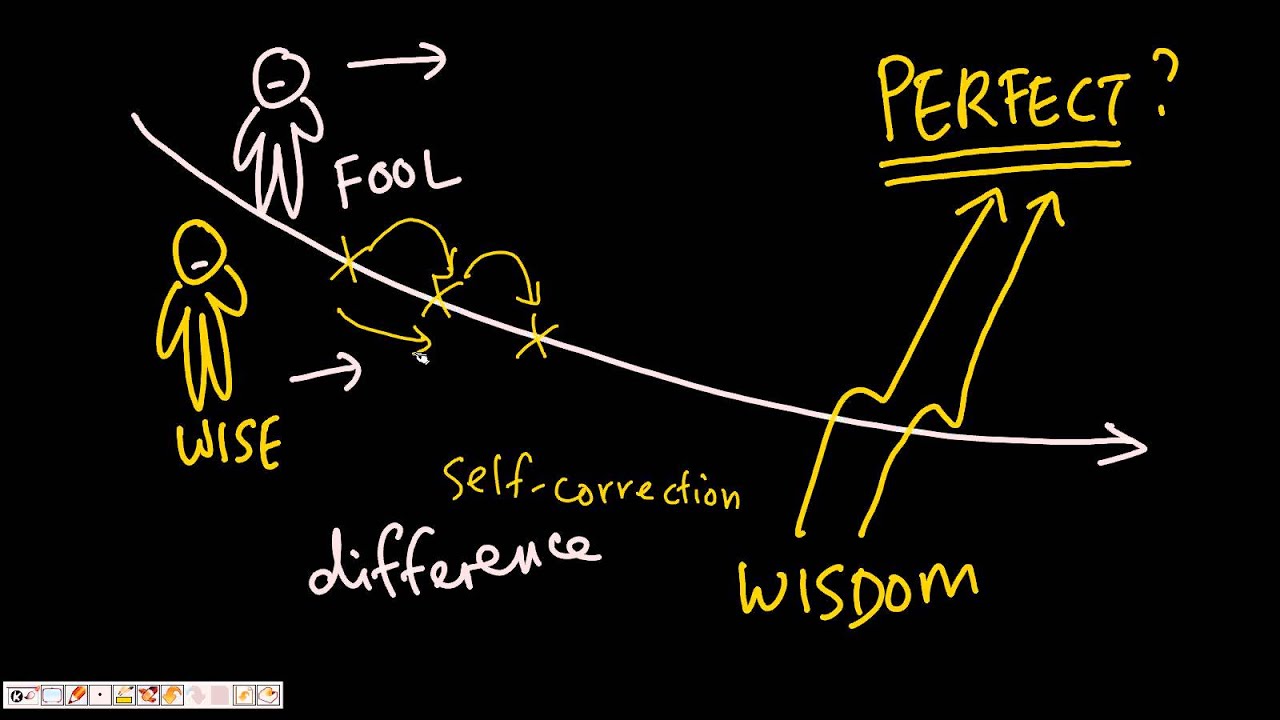 PERFECT?
FOOL
WISE
self-correction
difference
WISDOM